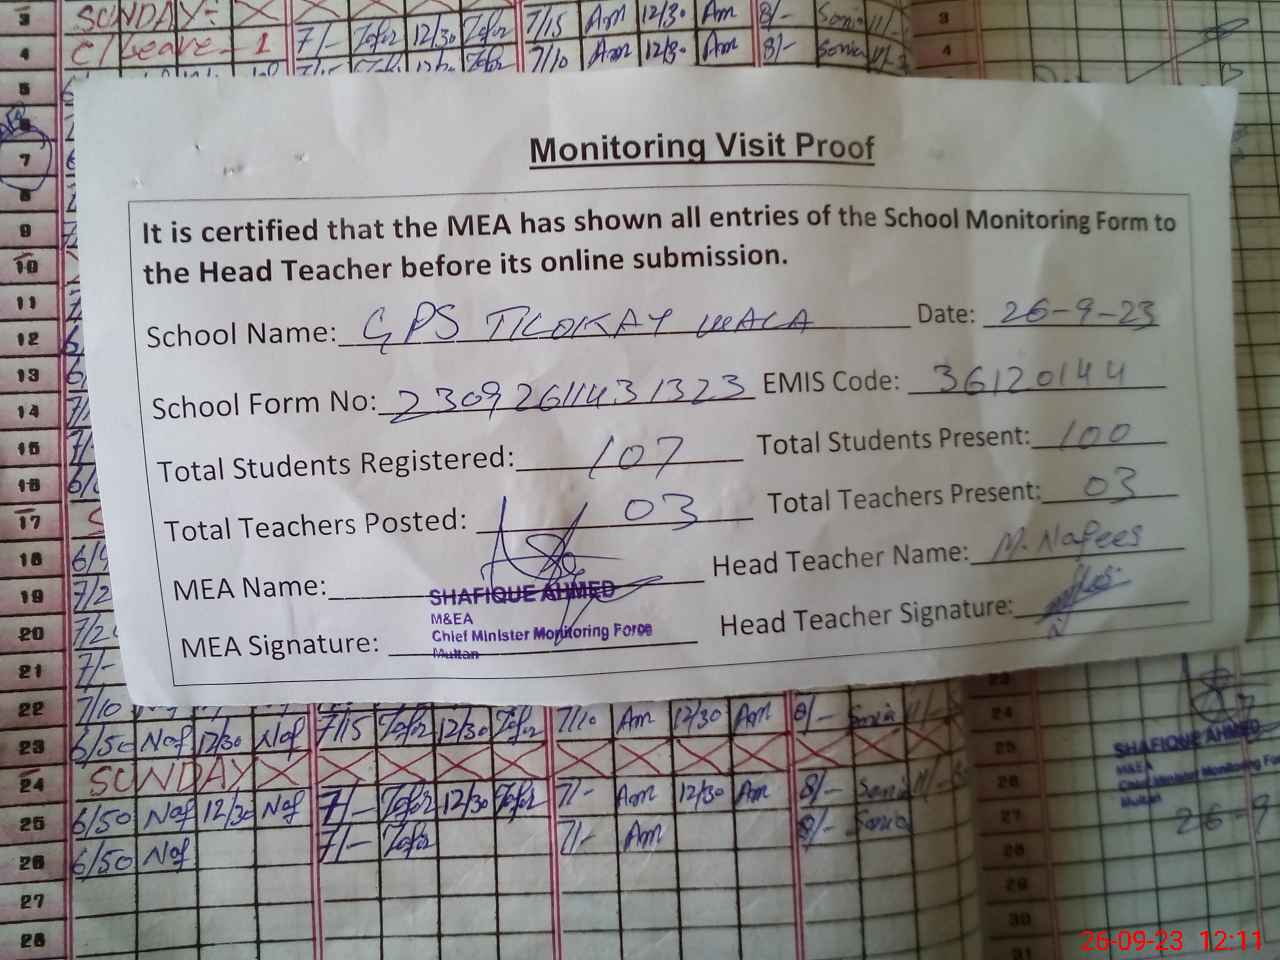 3 SUNDAY:- 7/15 Am 12/30 Am 8/- Sonia 11/- 3
4 C/Leave - 1 7/- Zafar 12/30 Zafar 7/10 Am 12/30 Am 8/- Sonia 11/- 4
5
6
7
8
9
10
11
12
13
14
15
16
17
18 6/5
19 7/2
20 7/2
21 7/-
Monitoring Visit Proof
It is certified that the MEA has shown all entries of the School Monitoring Form to
the Head Teacher before its online submission.
School Name: GPS TILOKAY WALA Date: 26-9-23
School Form No: 23092611431323 EMIS Code: 36120144
Total Students Registered: 107 Total Students Present: 100
Total Teachers Posted: 03 Total Teachers Present: 03
MEA Name: Head Teacher Name: M. Nafees
SHAFIQUE AHMED
M&EA
Chief Minister Monitoring Force
Multan
MEA Signature: Head Teacher Signature:
22 7/10 7/15 Zafar 12/30 Zafar 7/10 Am 12/30 Am 8/- Sonia 11/- 24
23 6/50 Naf 12/30 Naf 25
24 SUNDAY 26
25 6/50 Naf 12/30 Naf 7/- Zafar 12/30 Zafar 7/- Am 12/30 Am 8/- Sonia 11/- 27
26 6/50 Naf 7/- Zafar 7/- Am 8/- Sonia 28
27 29
28 30
31
SHAFIQUE AHMED
M&EA
Chief Minister Monitoring Fo
Multan
26-9
26-09-23 12:11